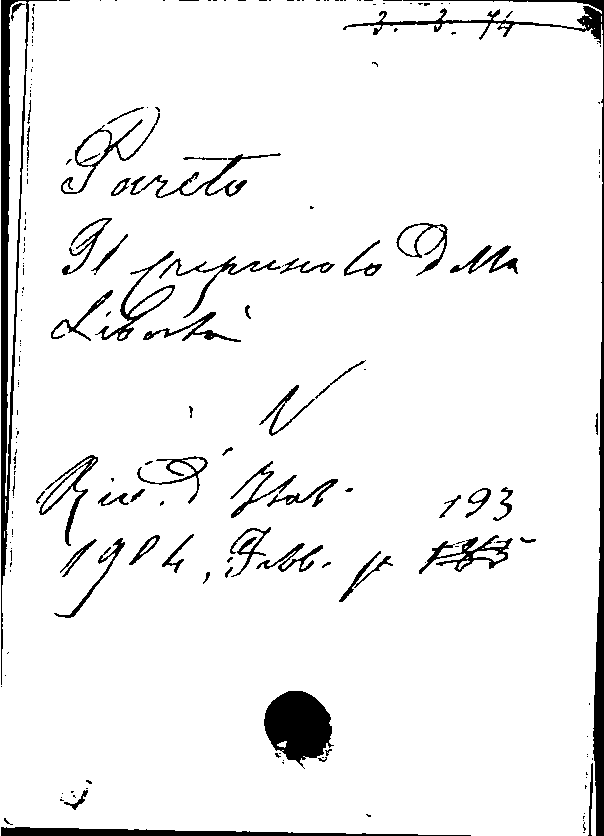 3. 3. 74
Pareto
Il crepuscolo Della
Libertà
Riv. d'Ital. 193
1904, Febb. p